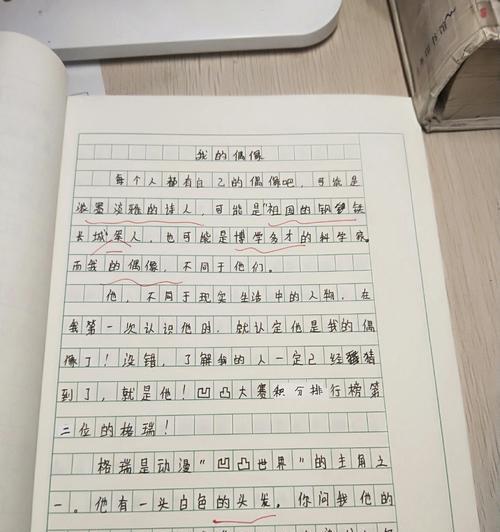 我的偶像
每个人都有自己的偶像吧，可能是
淡雅的诗人，可能是“祖国的钢铁
长城”军人，也可能是博学多才的科学家。
而我的偶像，不同于他们。
他，不同于现实生活中的人物，在
我第一次认识他时，就认定他是我的偶
像了！没错，了解我的人一定已经猜
到了，就是他！凹凸大赛积分排行榜第
二位的格瑞！
格瑞是动漫“凹凸世界”的主角之
一。他有一头白色的头发，你问我他的